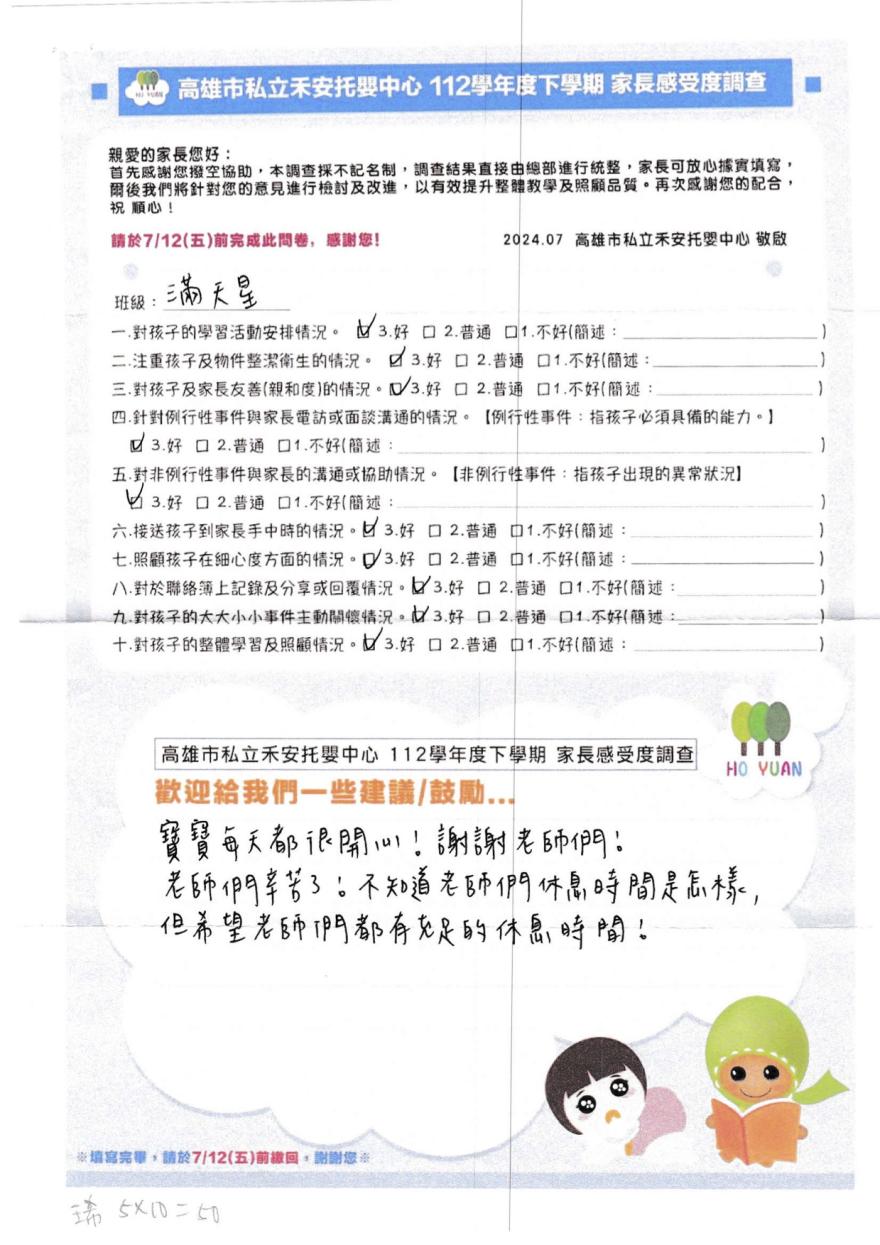 HO YUAN
高雄市私立禾安托嬰中心 112學年度下學期 家長感受度調查
親愛的家長您好：
首先感謝您撥空協助，本調查採不記名制，調查結果直接由總部進行統整，家長可放心據實填寫，
爾後我們將針對您的意見進行檢討及改進，以有效提升整體教學及照顧品質。再次感謝您的配合，
祝 順心！
請於7/12(五)前完成此問卷，感謝您!
2024.07 高雄市私立禾安托嬰中心 敬啟
班級：滿天星
一.對孩子的學習活動安排情況。 ☑ 3.好 □ 2.普通 □1.不好(簡述：)
二.注重孩子及物件整潔衛生的情況。 ☑ 3.好 □ 2.普通 □1.不好(簡述：)
三.對孩子及家長友善(親和度)的情況。☑ 3.好 □ 2.普通 □1.不好(簡述：)
四.針對例行性事件與家長電訪或面談溝通的情況。【例行性事件：指孩子必須具備的能力。】
☑ 3.好 □ 2.普通 □1.不好(簡述：)
五.對非例行性事件與家長的溝通或協助情況。【非例行性事件：指孩子出現的異常狀況】
☑ 3.好 □ 2.普通 □1.不好(簡述：)
六.接送孩子到家長手中時的情況。☑ 3.好 □ 2.普通 □1.不好(簡述：)
七.照顧孩子在細心度方面的情況。☑ 3.好 □ 2.普通 □1.不好(簡述：)
八.對於聯絡簿上記錄及分享或回覆情況。☑ 3.好 □ 2.普通 □1.不好(簡述：)
九.對孩子的大大小小事件主動關懷情況。☑ 3.好 □ 2.普通 □1.不好(簡述：)
十.對孩子的整體學習及照顧情況。☑ 3.好 □ 2.普通 □1.不好(簡述：)
高雄市私立禾安托嬰中心 112學年度下學期 家長感受度調查
HO YUAN
歡迎給我們一些建議/鼓勵...
寶寶每天都很開心！謝謝老師們！
老師們辛苦了！不知道老師們休息時間是怎樣，
但希望老師們都有充足的休息時間！
※填寫完畢，請於7/12(五)前繳回，謝謝您※
5×10=50